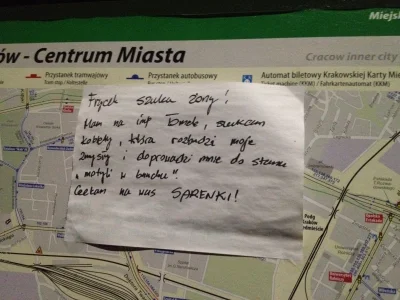 Miejsk
ów - Centrum Miasta
Cracow inner city
Przystanek tramwajowy
Tram stop / Haltestelle
Przystanek autobusowy
Automat biletowy Krakowskiej Karty Mie
Ticket machine (KKM) / Fahrkartenautomat (KKM)
szuka żony!
Mam na imię Tomek, szukam
kobiety, która rozbudzi moje
zmysły i doprowadzi mnie do stanu
"motyli w brzuchu".
Czekam na was SARENKI!